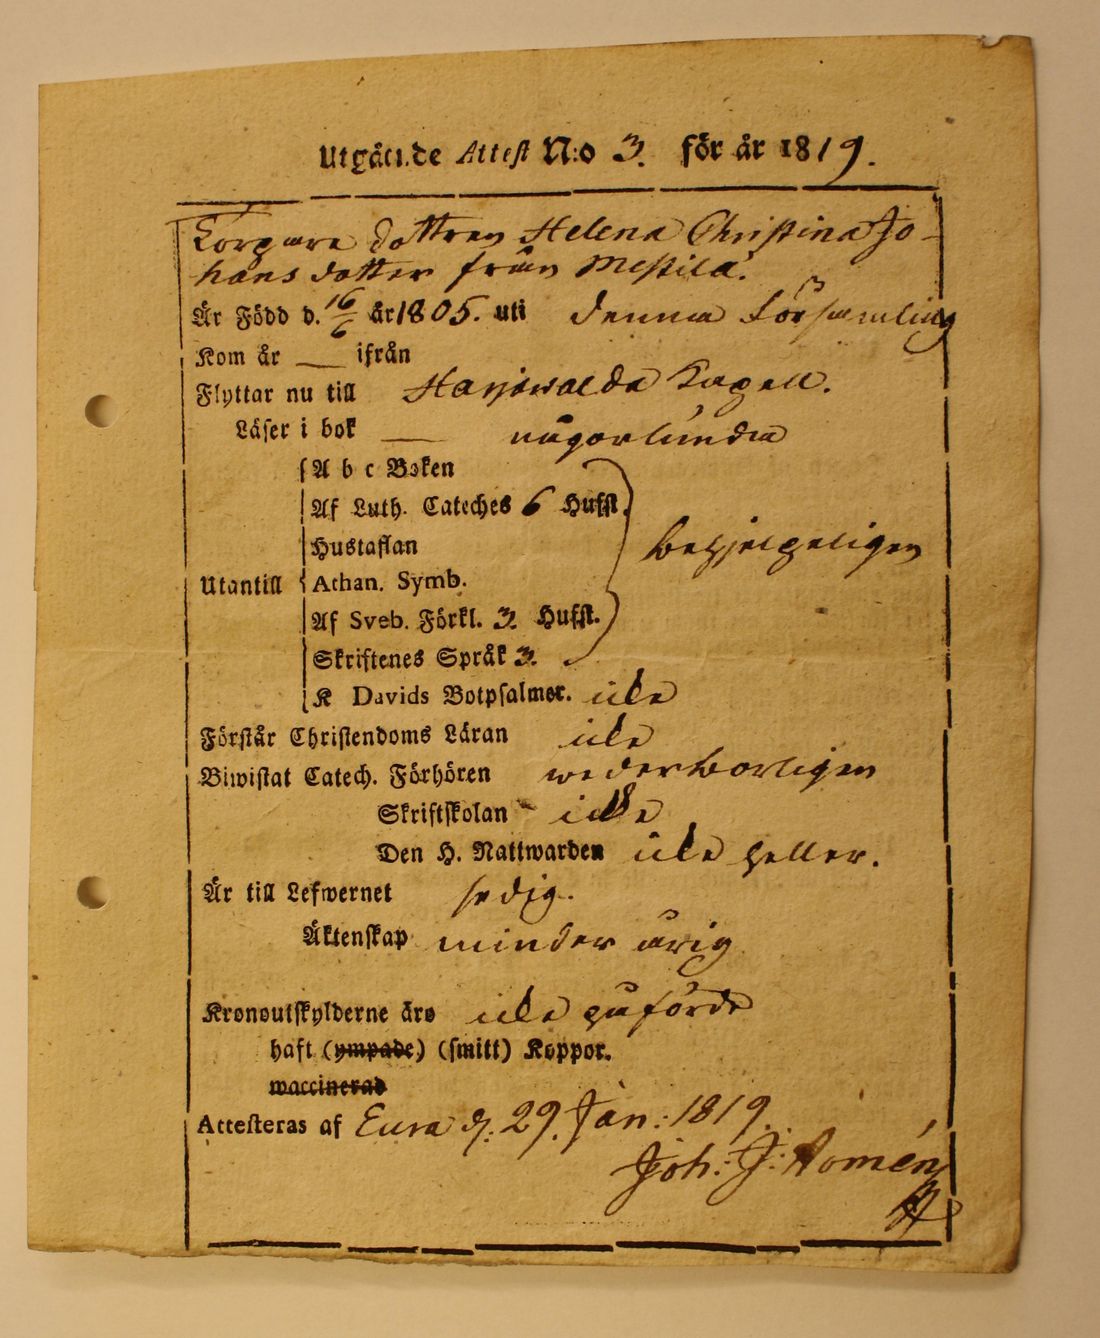 Utgående Attest N:o 3. för år 1819.
Torpare dottren Helena Christina Jo-
hans dotter från Mestilä.
Är Född d. 16/6 år 1805. uti denna Församling
Kom år — ifrån
Flyttar nu till Harjawalda Capell.
Läser i bok — någorlunda
A b c Boken
Af Luth. Cateches 6 Hufst.
Hustaflan
behjelpeligen
Utantill Athan. Symb.
Af Sveb. Förkl. 3. Hufst.
Skriftenes Språk 3.
K Davids Botpsalmer. icke
Förstår Christendoms Läran icke
Biwistat Catech. Förhören wederborligen
Skriftskolan icke
Den H. Nattwarden icke heller.
Är till Lefwernet sedig.
Äktenskap minder årig
Kronoutskylderne äro icke påförde
haft (ympade) (smitt) Koppor.
waccinerad
Attesteras af Eura d. 29. Jan: 1819.
Joh: J: Homén